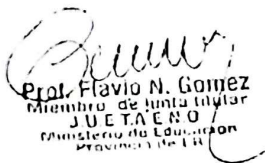 Prof. Flavio N. Gomez
Miembro de Junta titular
J.U.E.T.A.E.N.O
Ministerio de Educacion
Provincia de E R